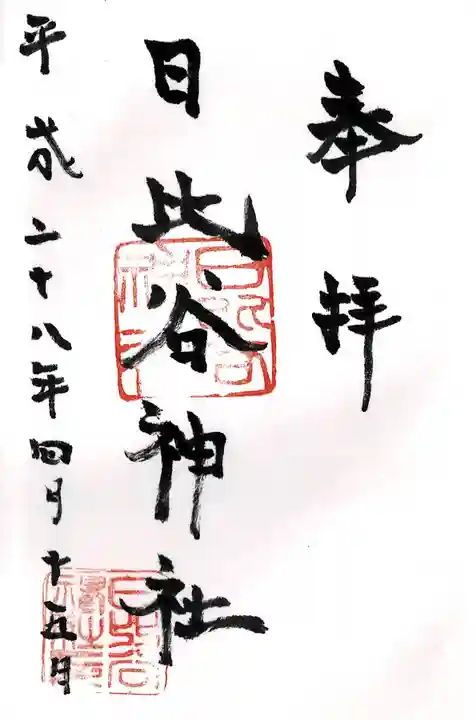 奉拝
日比谷神社
平成二十八年四月十五日